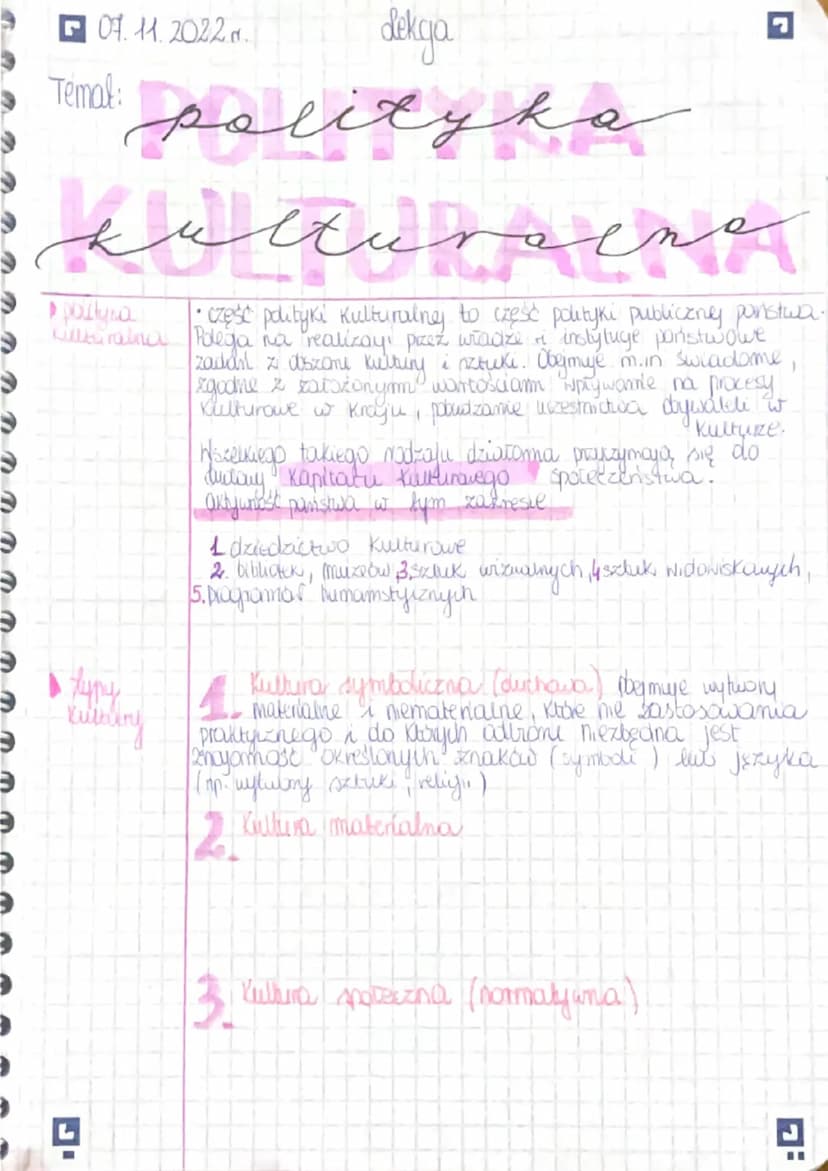 07.11.2022r. Lekcja
Temat:
POLITYKA
polityka
KULTURALNA
kulturalna
polityka
kulturalna
• część polityki kulturalnej to część polityki publicznej państwa.
Polega na realizacji przez władze i instytucje państwowe
zadań z dziedziny kultury i sztuki. Obejmuje m.in świadome,
zgodne z założonymi wartościami wpływanie na procesy
kulturowe w kraju, pobudzanie uczestnictwa obywateli w
kulturze.
Wszelkiego takiego rodzaju działania przyczyniają się do
kapitału kulturowego społeczeństwa.
aktywność państwa w tym zakresie
1 dziedzictwo kulturowe
2. bibliotek, muzeów, 3. sztuk wizualnych, 4 sztuk widowiskowych,
5. programów humanistycznych
typy
kultury
1. Kultura symboliczna (duchowa) obejmuje wytwory
materialne i niematerialne, które nie zastosowania
praktycznego i do których odbioru niezbędna jest
znajomość określonych znaków (symboli) lub języka
(np. wytwory sztuki, religii)
2. Kultura materialna
3. Kultura społeczna (normatywna)